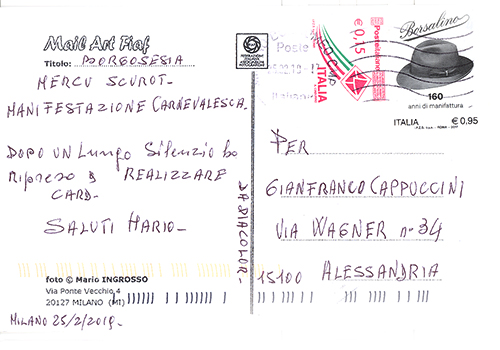 Mail Art Fiaf
Titolo: BORGOSESIA
MERCU SCUROT-
MANIFESTAZIONE CARNEVALESCA
DOPO UN LUNGO SILENZIO ho
RIPRESO A REALIZZARE
CARD-
SALUTI MARIO-
foto © Mario INGROSSO
Via Ponte Vecchio, 4
20127 MILANO (MI)
MILANO 25/2/2019-
DA DIACOLOR-
Poste
Italiane
€ 0,15
Posteitaliane
ITALIA
Borsalino
160
anni di manifattura
ITALIA € 0.95
PER
GIANFRANCO CAPPUCCINI
VIA WAGNER n° 34
15100 ALESSANDRIA